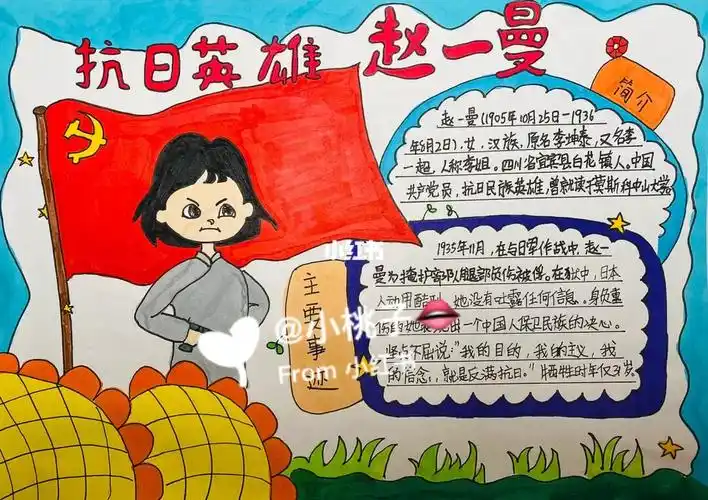 抗日英雄 赵一曼
简介
赵一曼(1905年10月25日—1936
年8月2日),女,汉族,原名李坤泰,又名李
一超,人称李姐。四川省宜宾县白花镇人。中国
共产党员,抗日民族英雄,曾就读于莫斯科中山大学。
主要事迹
1935年11月,在与日军作战中,赵一
曼为掩护部队腿部负伤被俘。在狱中,日本
人动用酷刑,她没有吐露任何信息。身负重
出一个中国人保卫民族的决心。
屈说:"我的目的,我的主义,我
的信念,就是反满抗日。"牺牲时年仅31岁
@小桃子
From 小红书